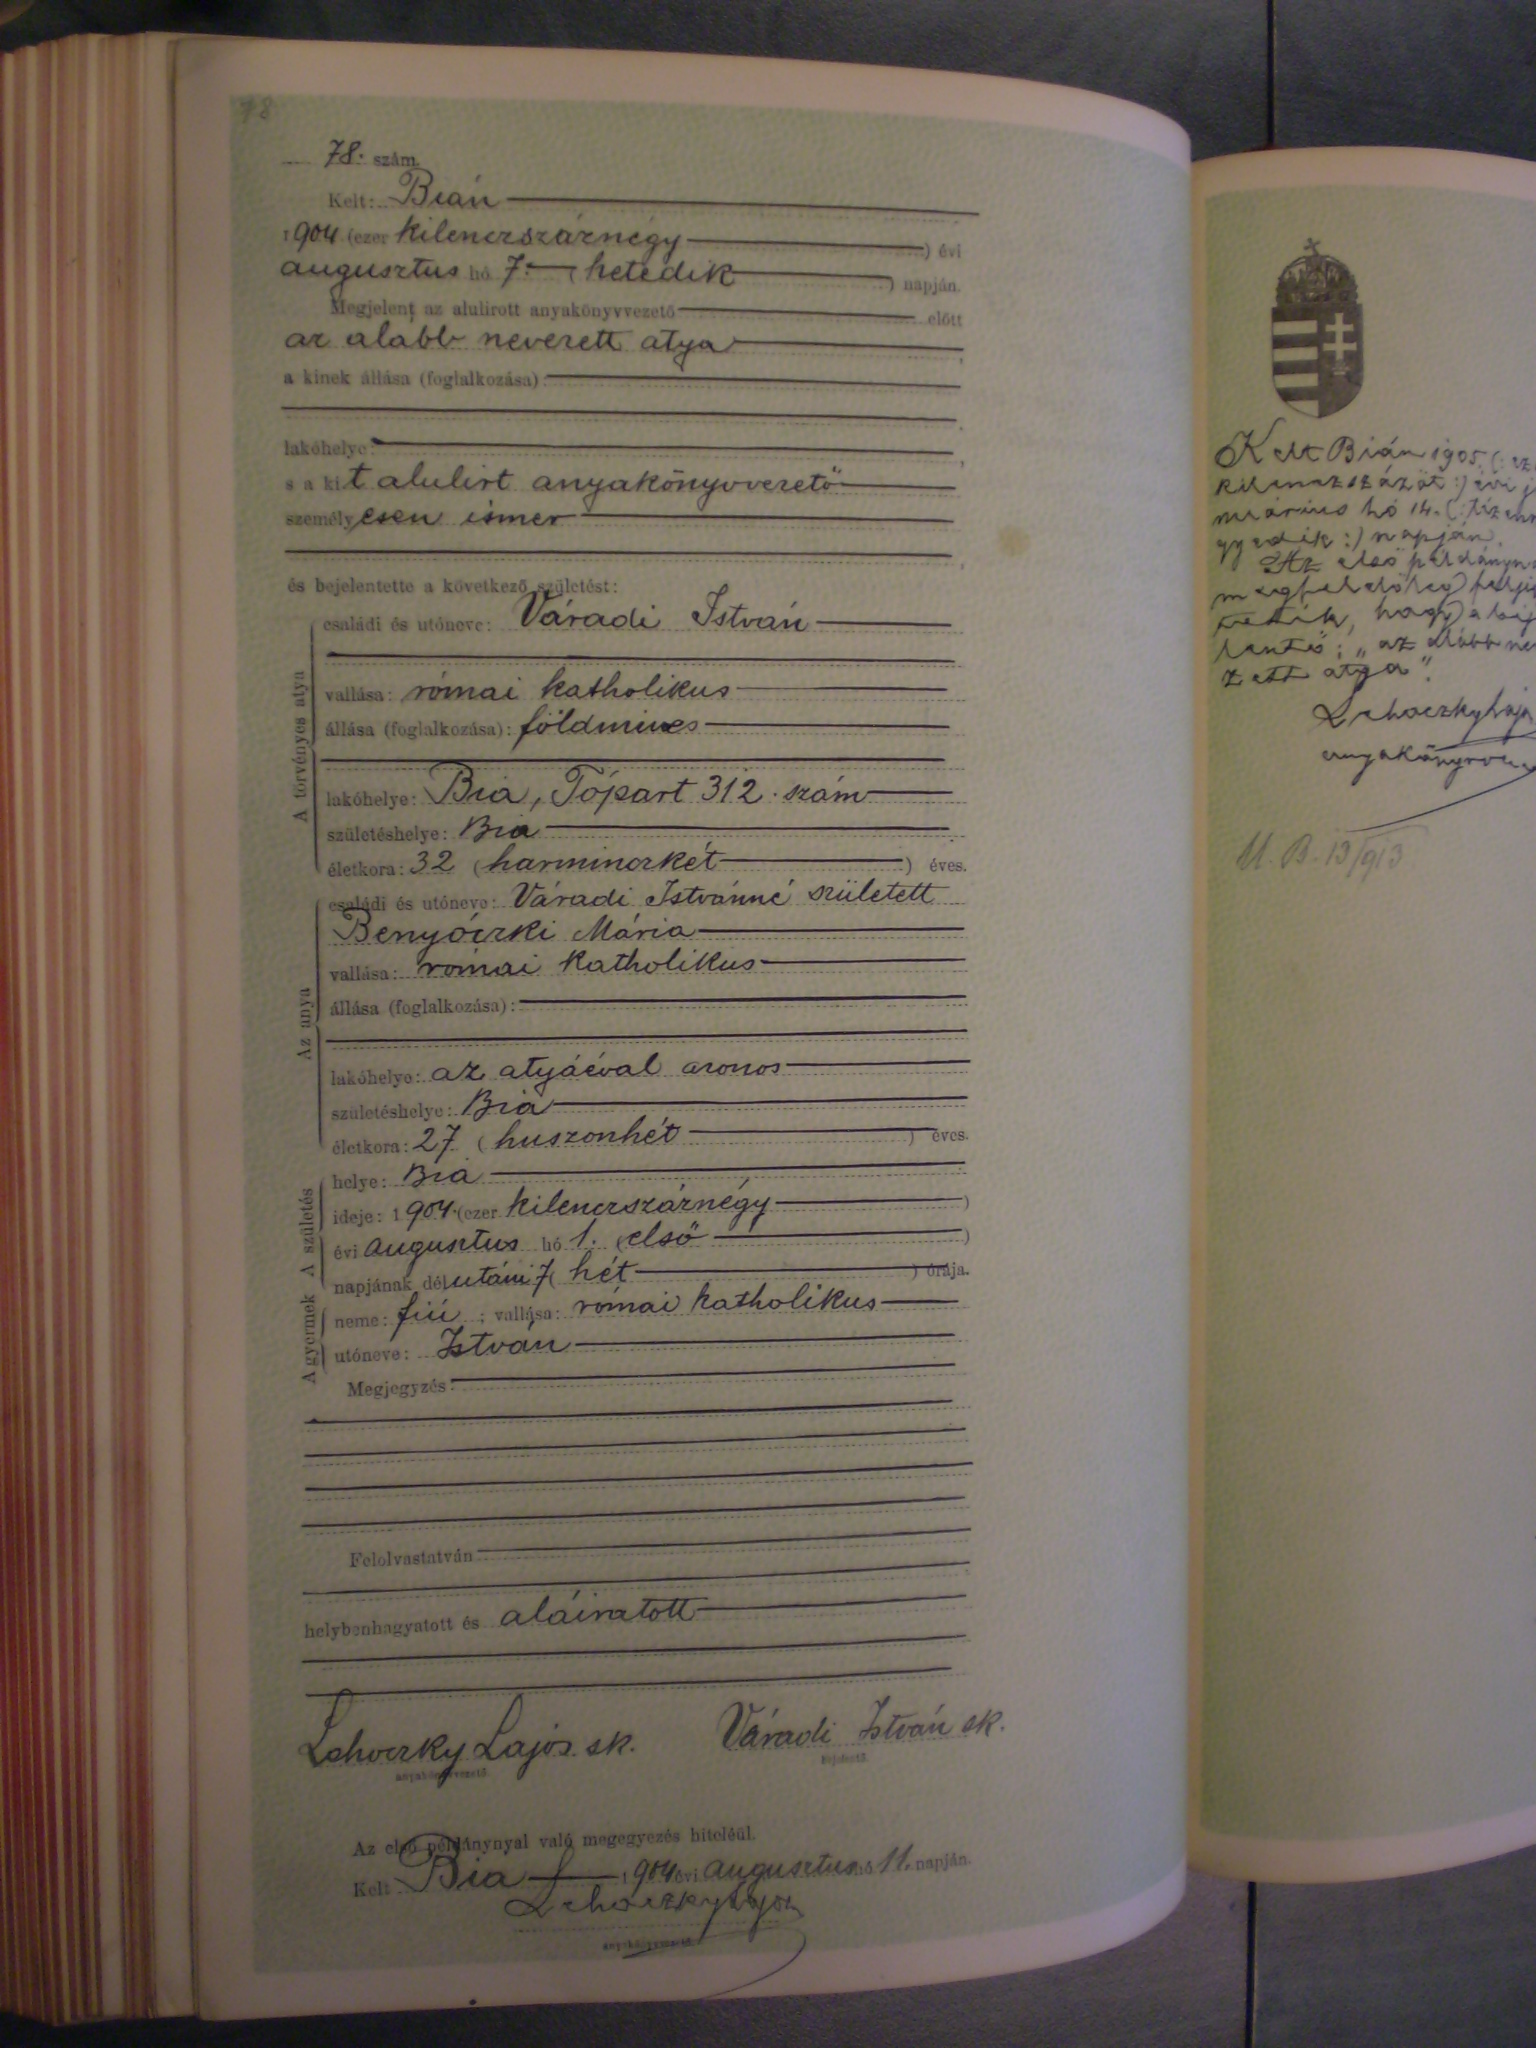 78
78. szám.
Kelt: Bián
1904 (ezer kilenczszáznégy ) évi
augusztus hó 7. ( hetedik ) napján.
Megjelent az alulirott anyakönyvvezető előtt
az alább nevezett atya ,
a kinek állása (foglalkozása):
lakóhelye:
s a kit alulirt anyakönyvvezető
személyesen ismer
és bejelentette a következő születést:
A törvényes atya
családi és utóneve: Váradi István
vallása: római katholikus
állása (foglalkozása): földmives
lakóhelye: Bia, Tópart 312. szám
születéshelye: Bia
életkora: 32 (harminczkét ) éves.
Az anya
családi és utóneve: Váradi Istvánné született
Benyóczki Mária
vallása: római katholikus
állása (foglalkozása):
lakóhelye: az atyáéval azonos
születéshelye: Bia
életkora: 27 (huszonhét ) éves.
A születés
helye: Bia
ideje: 1904. (ezer kilenczszáznégy )
évi augusztus hó 1. (első )
napjának délutáni 7 ( hét ) órája.
A gyermek
neme: fiú ; vallása: római katholikus
utóneve: István
Megjegyzés:
Felolvastatván
helybenhagyatott és aláiratott
Lehoczky Lajos sk. Váradi István sk.
anyakönyvvezető bejelentő
Az első példánynyal való megegyezés hiteléül.
Kelt Bia 1904 évi augusztus hó 11. napján.
Lehoczky Lajos
anyakönyvvezető
Kelt Bián 1905. (: ez
kilenczszázöt :) évi j
nuárius hó 14. (: tizenn
gyedik :) napján.
Az első példányn
megfelelőleg
hogy a bej
lentő: „az alább ne
zett atya".
Lehoczky Lajo
anyakönyvvez
M. B. 13/913